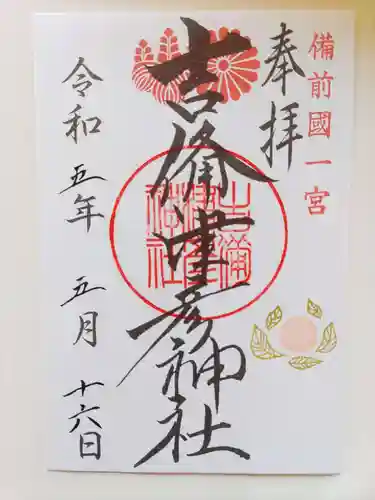 備前國一宮
奉拝
吉備津彦神社
吉備津彦神社
令和五年五月十六日